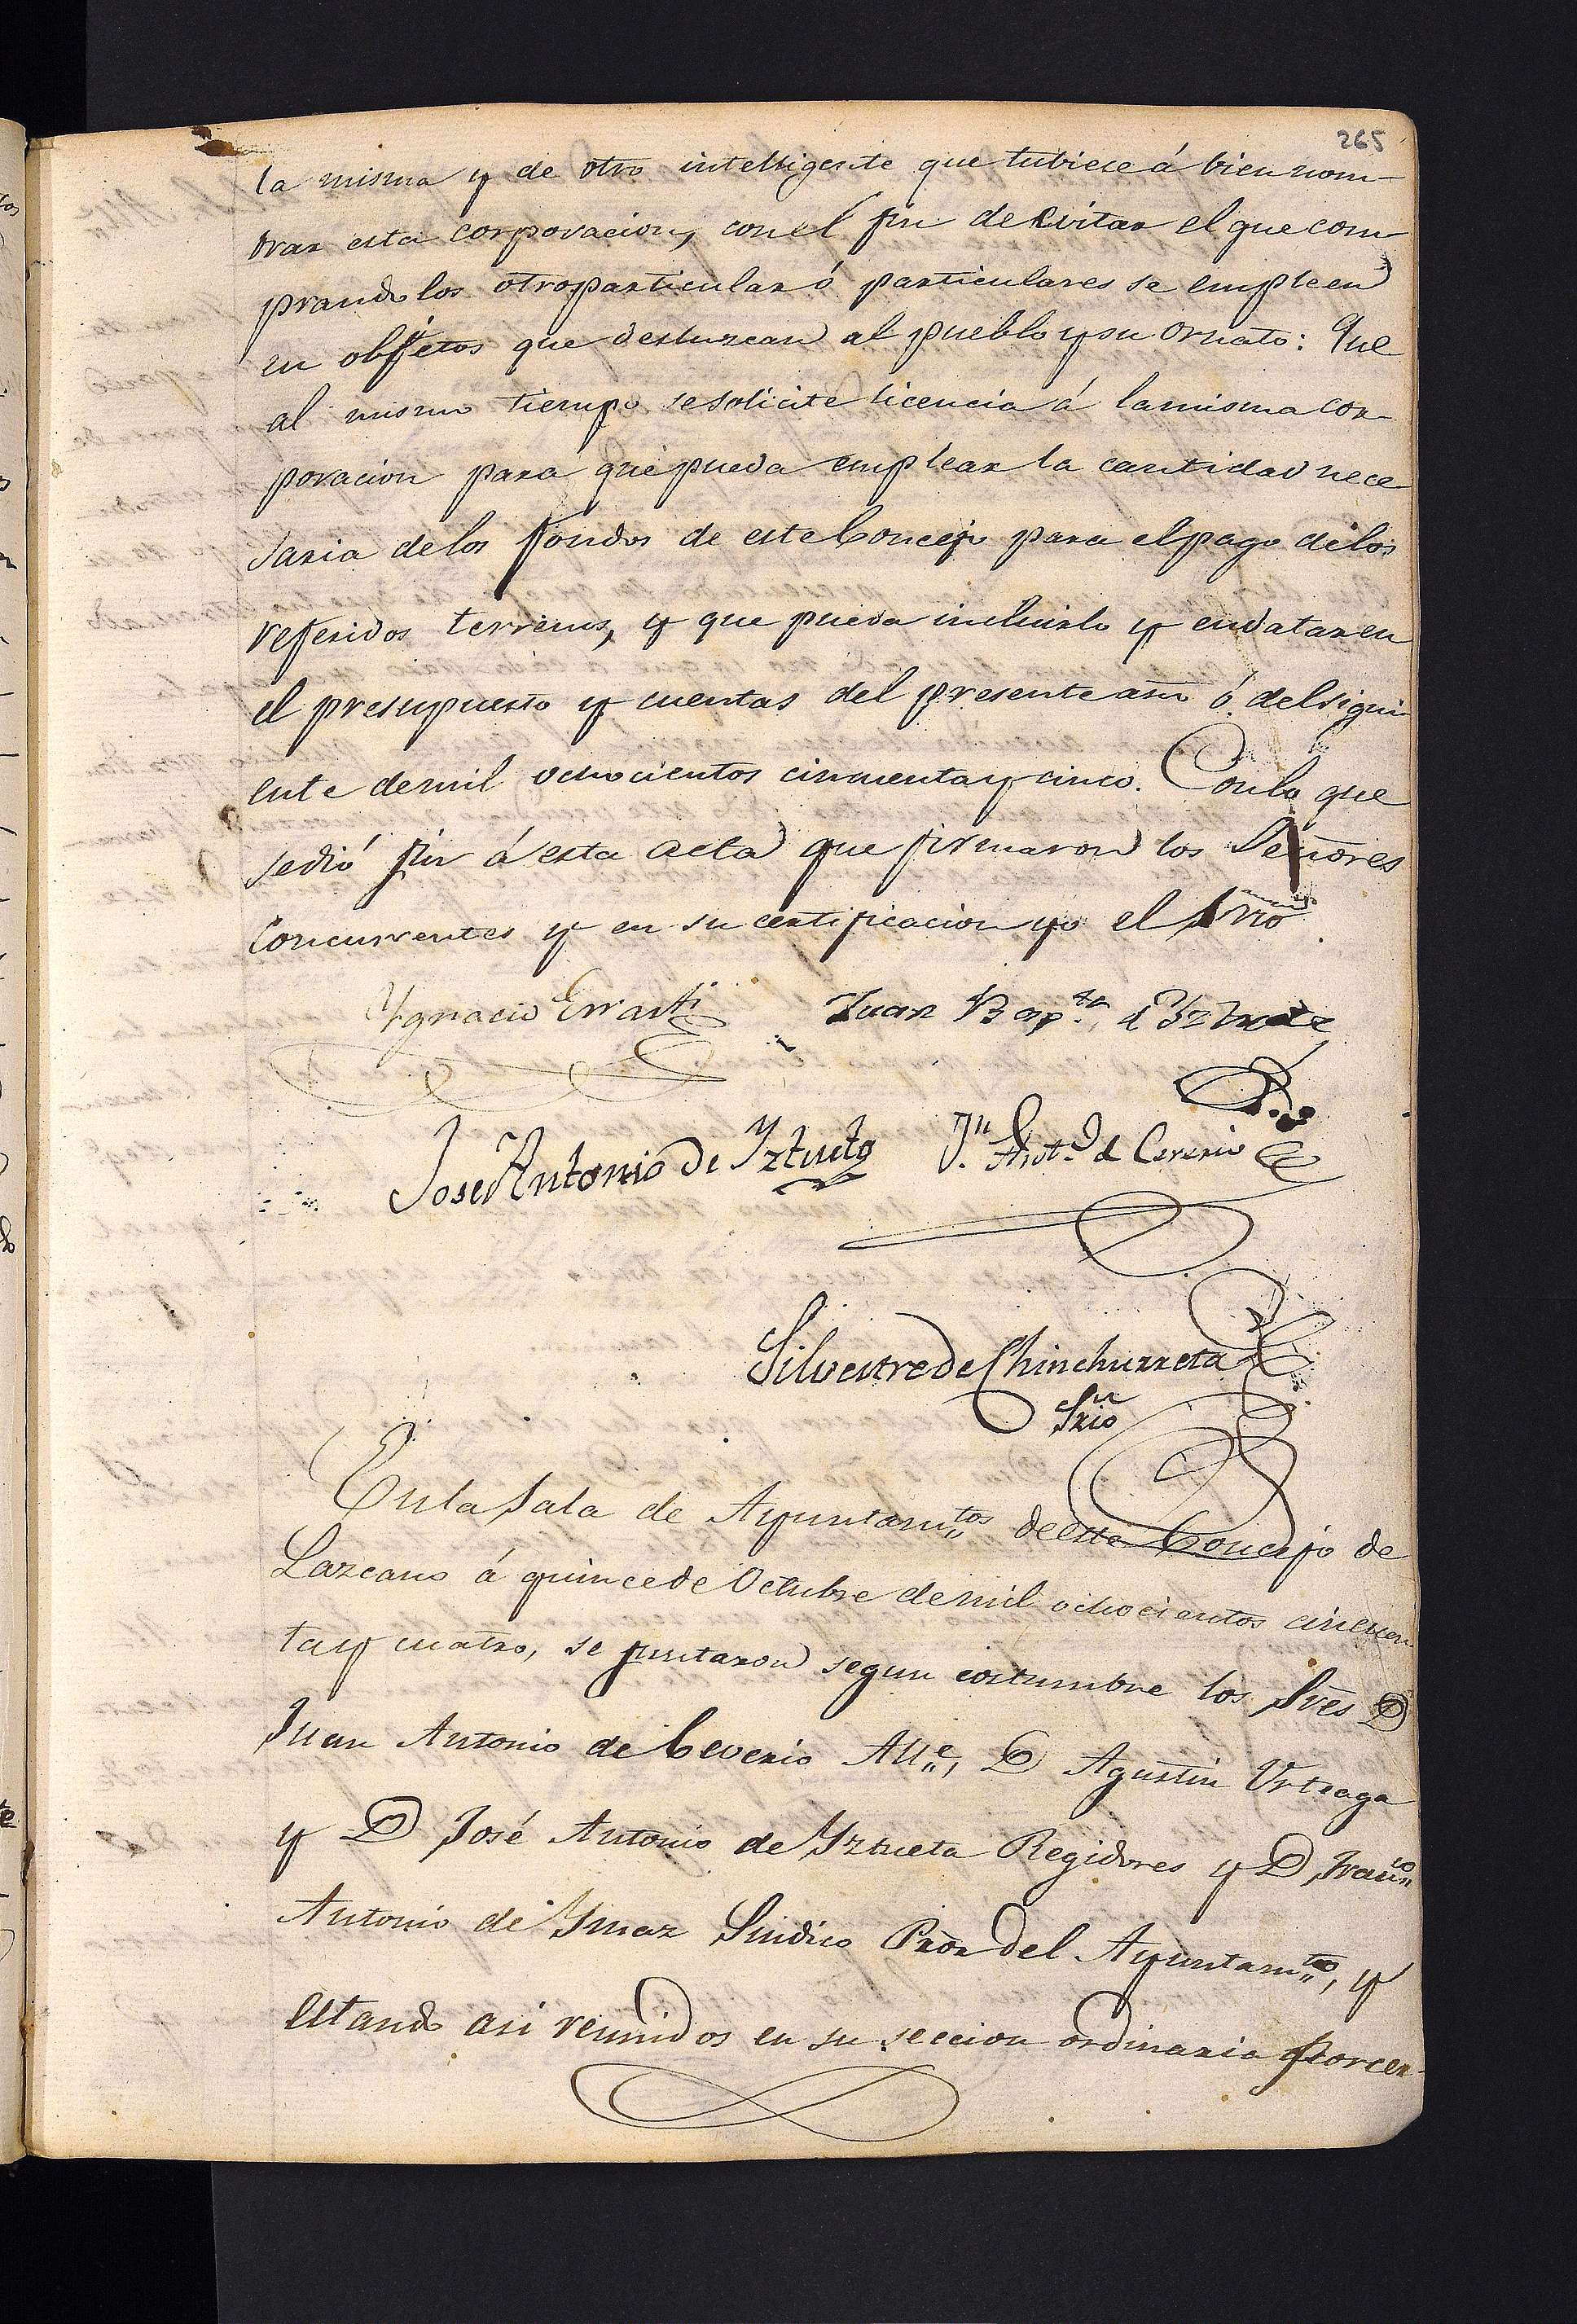 265
la misma y de otro intelligente que tubiere á bien nom-
brar esta corporacion, con el fin de evitar el que com-
prandolos otro particular ó particulares se empleen
en objetos que desluzcan al pueblo y su ornato: Que
al mismo tiempo se solicite licencia á la misma cor-
poracion para que pueda emplear la cantidad nece-
saria de los fondos de este Concejo para el pago de los
referidos terrenos, y que pueda incluirlo y endatar en
el presupuesto y cuentas del presente año ó del sigui-
ente de mil ochocientos cincuenta y cinco. Con lo que
se dió fin á esta acta que firmaron los Señores
concurrentes y en su certificacion yo el Srio.
Ygnacio Errasti Juan Bapta
Jose Antonio de Yztueta Jn. Anto. de
Silvestre de Chinchurreta
Srio
En la Sala de Ayuntamtos de este Concejo de
Lazcano á quince de Octubre de mil ochocientos cincuen
ta y cuatro, se juntaron segun costumbre los Sres D
Juan Antonio de Ceverio Alle, D Agustin Urteaga
y D José Antonio de Yztueta Regidores y D Franco
Antonio de Ymaz Sindico Pror del Ayuntamto, y
estando asi reunidos en su seccion ordinaria